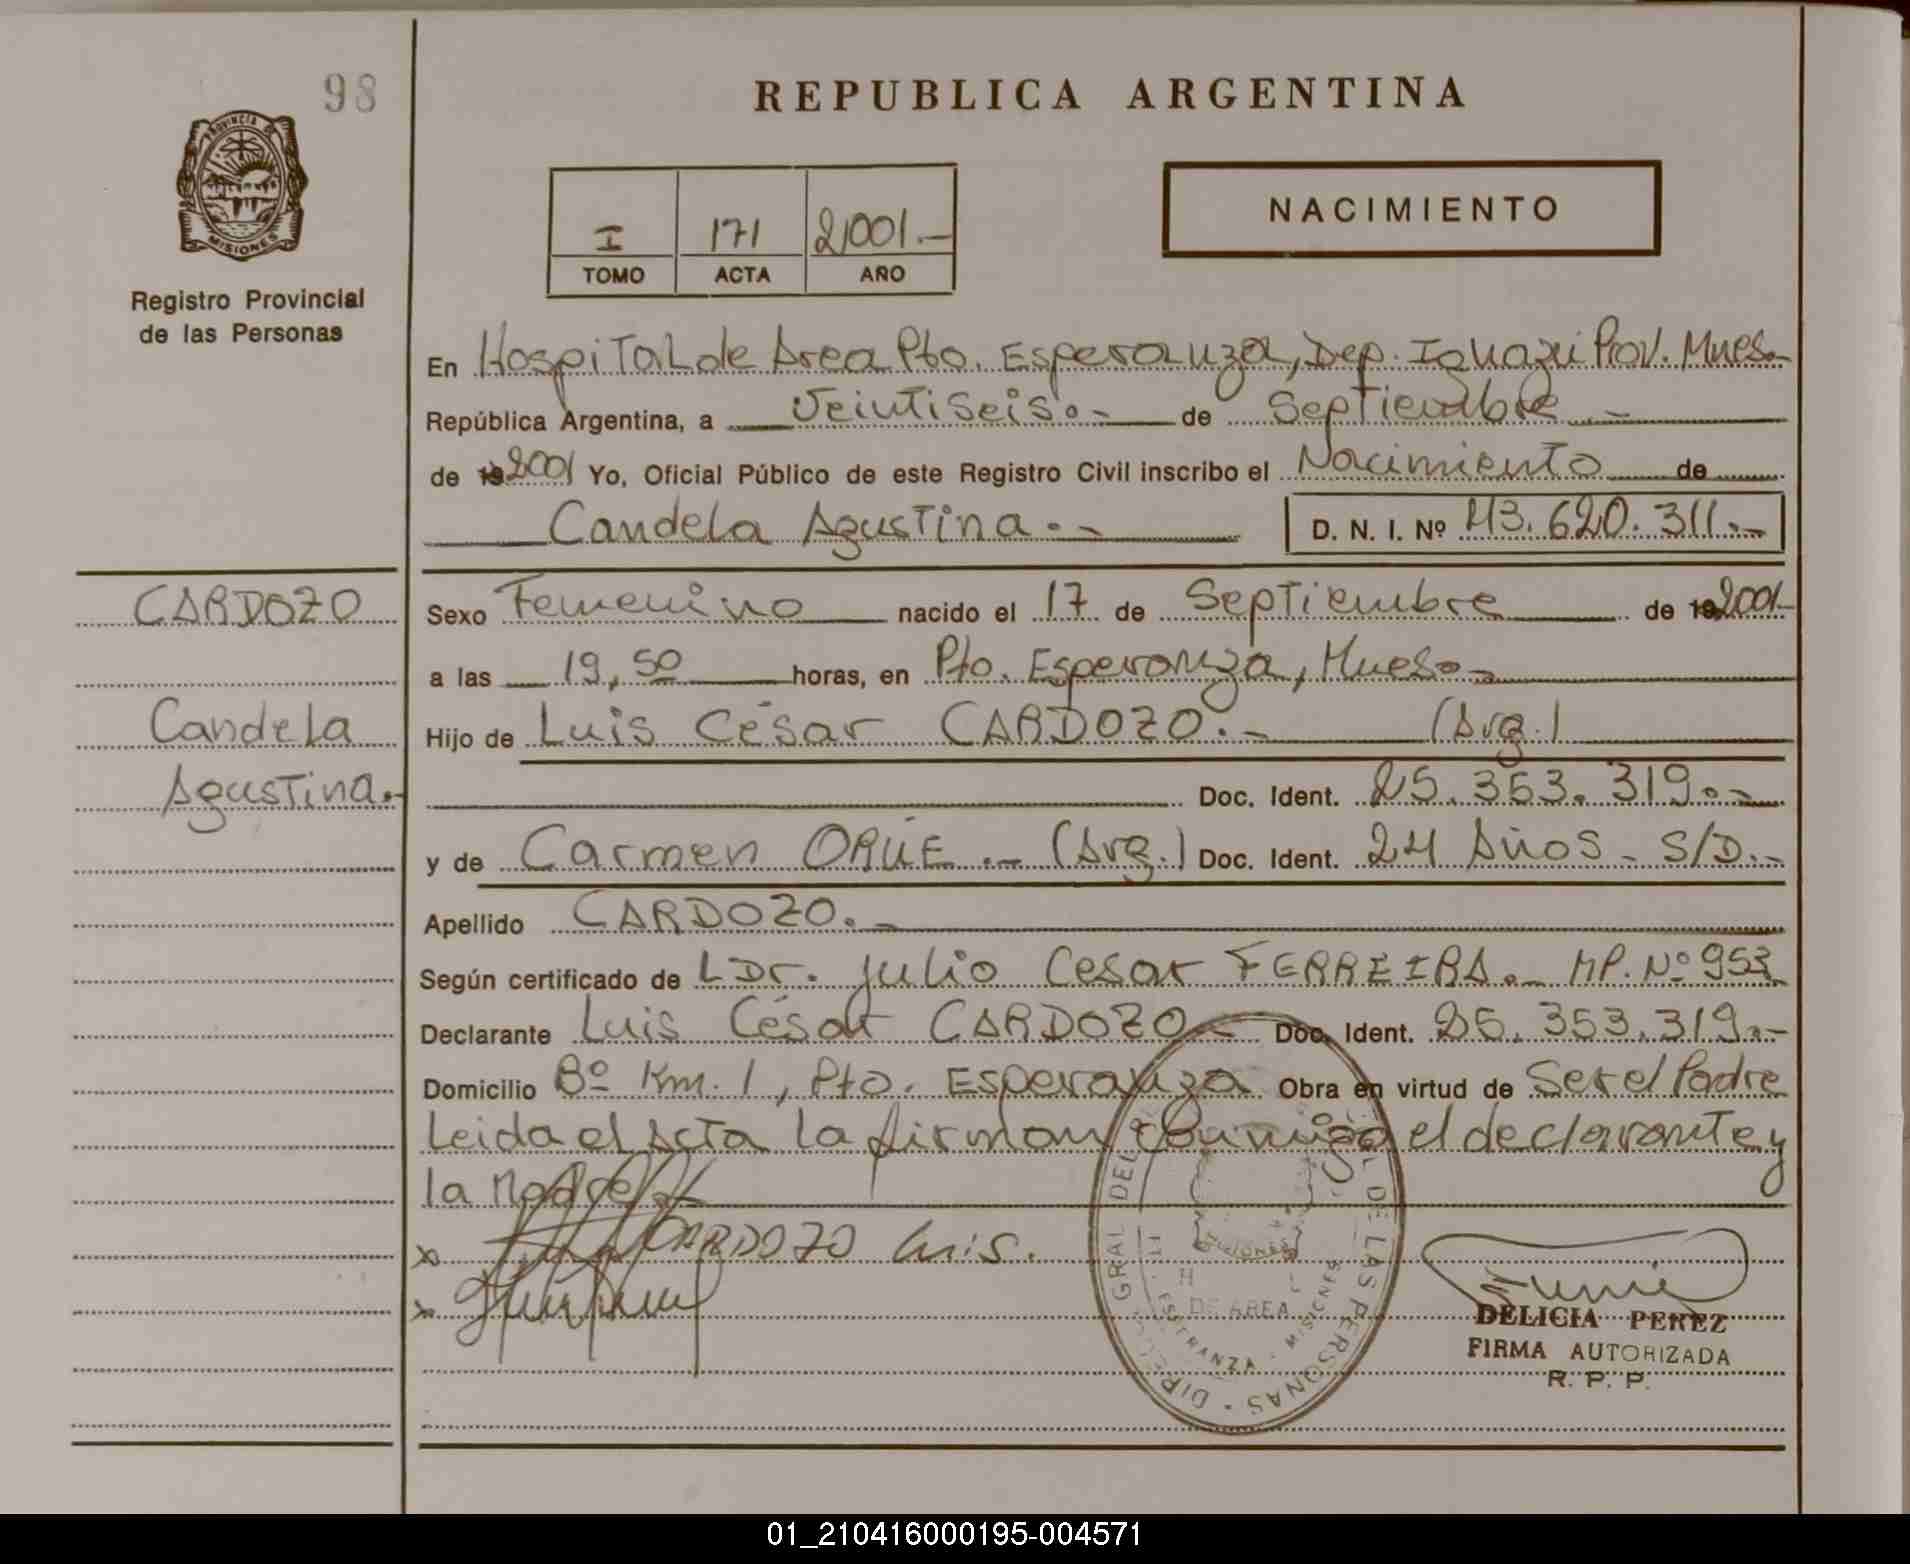 98
REPUBLICA ARGENTINA
PROVINCIA DE
MISIONES
Registro Provincial
de las Personas
I 171 2001.-
TOMO ACTA AÑO
NACIMIENTO
En Hospital de Area Pto. Esperanza, Dep. Iguazú Prov. Mnes.-
República Argentina, a Veintiseis.- de Septiembre.-
de 19 2001 Yo, Oficial Público de este Registro Civil inscribo el Nacimiento de
Candela Agustina.- D. N. I. Nº 43.620.311.-
CARDOZO
Candela
Agustina.-
Sexo Femenino nacido el 17 de Septiembre de 19 2001-
a las 19,50 horas, en Pto. Esperanza, Mnes.-
Hijo de Luis César CARDOZO.- (Arg.)
Doc. Ident. 25.353.319.-
y de Carmen ORUE.- (Arg.) Doc. Ident. 24 Años - S/D.-
Apellido CARDOZO.-
Según certificado de L Dr. Julio Cesar FERREIRA.- MP. Nº 953
Declarante Luis César CARDOZO.- Doc. Ident. 25.353.319.-
Domicilio Bº Km. 1, Pto. Esperanza Obra en virtud de Ser el Padre
Leida el Acta la firman conmigo el declarante y
la Madre
x CARDOZO Luis.
x
DE AREA
ESPERANZA - MISIONES
DE LAS PERSONAS
DELICIA PEREZ
FIRMA AUTORIZADA
R. P. P.
01_210416000195-004571